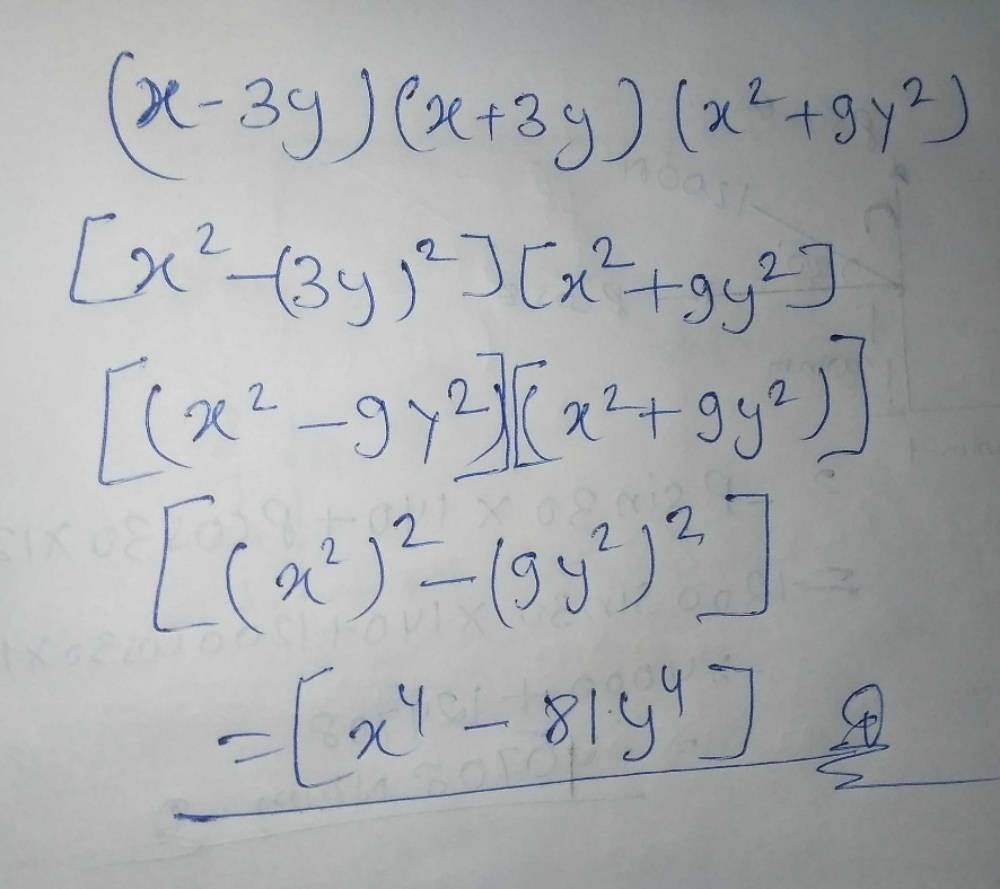 (x-3y)(x+3y)(x²+9y²)
[x²-(3y)²][x²+9y²]
[(x²-9y²)][(x²+9y²)]
[(x²)²-(9y²)²]
=[x⁴-81y⁴]